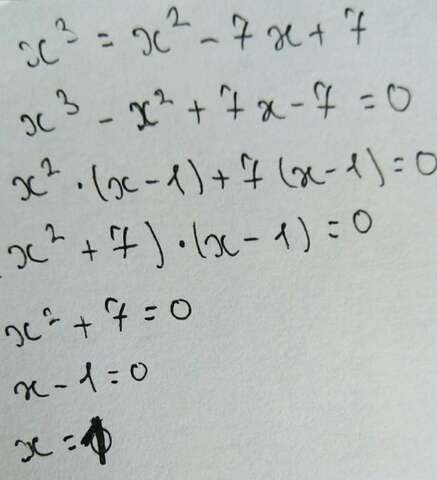 x³ = x² - 7x + 7
x³ - x² + 7x - 7 = 0
x² · (x - 1) + 7 (x - 1) = 0
x² + 7) · (x - 1) = 0
x² + 7 = 0
x - 1 = 0
x = 1